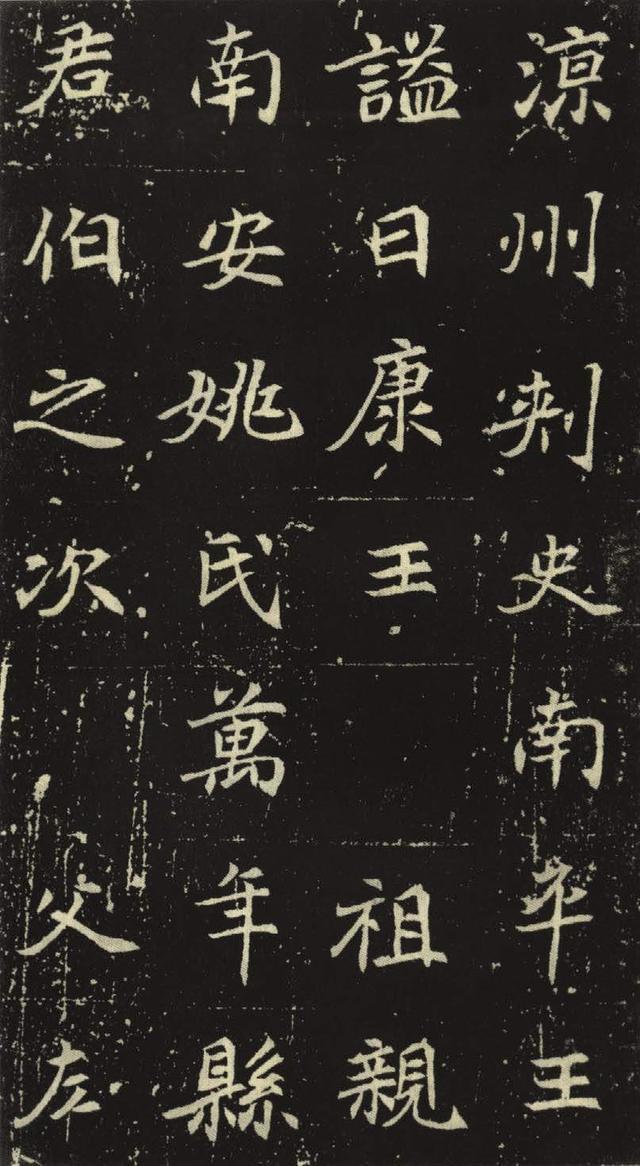 涼州刾史南平王
謚曰康王　祖親
南安姚氏萬年縣
君伯之次　父左